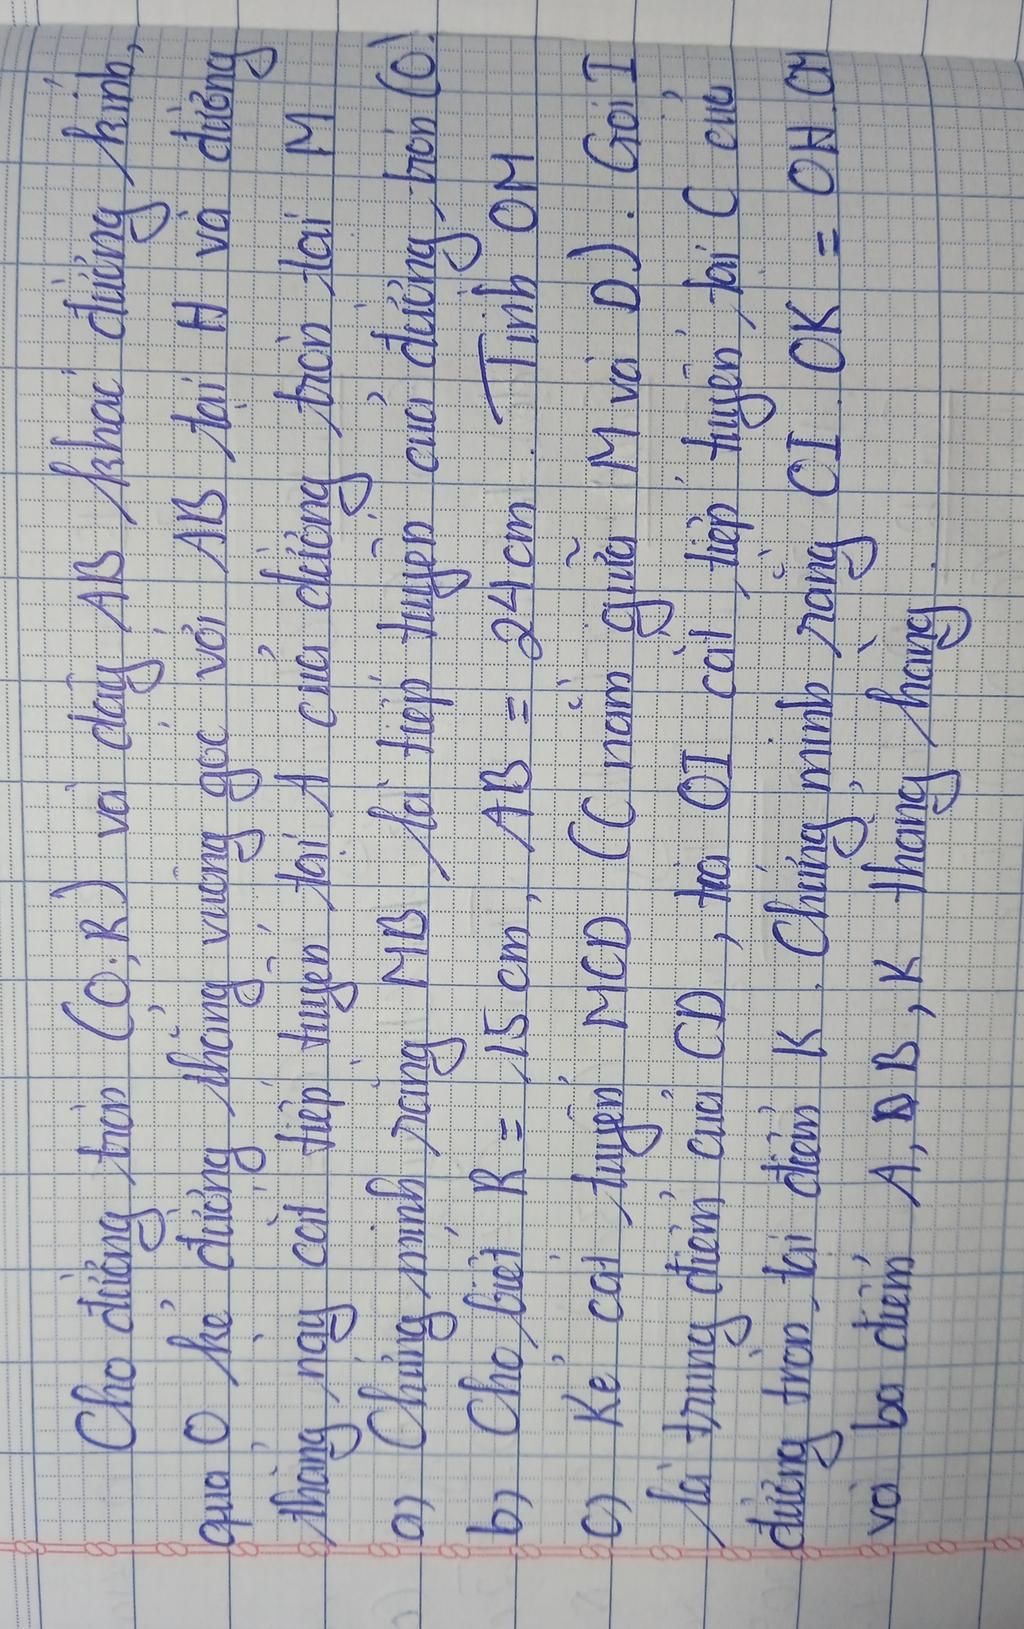 Cho đường tròn (O;R) và dây AB khác đường kính,
qua O kẻ đường thẳng vuông góc với AB tại H và đường
thẳng này cắt tiếp tuyến tại A của đường tròn tại M
a) Chứng minh rằng MB là tiếp tuyến của đường tròn (O).
b) Cho biết R = 15 cm, AB = 24cm. Tính OM
c) Kẻ cát tuyến MCD (C nằm giữa M và D). Gọi I
là trung điểm của CD, tia OI cắt tiếp tuyến tại C của
đường tròn tại điểm K. Chứng minh rằng OI.OK = OH.OM
và ba điểm A, B, K thẳng hàng.